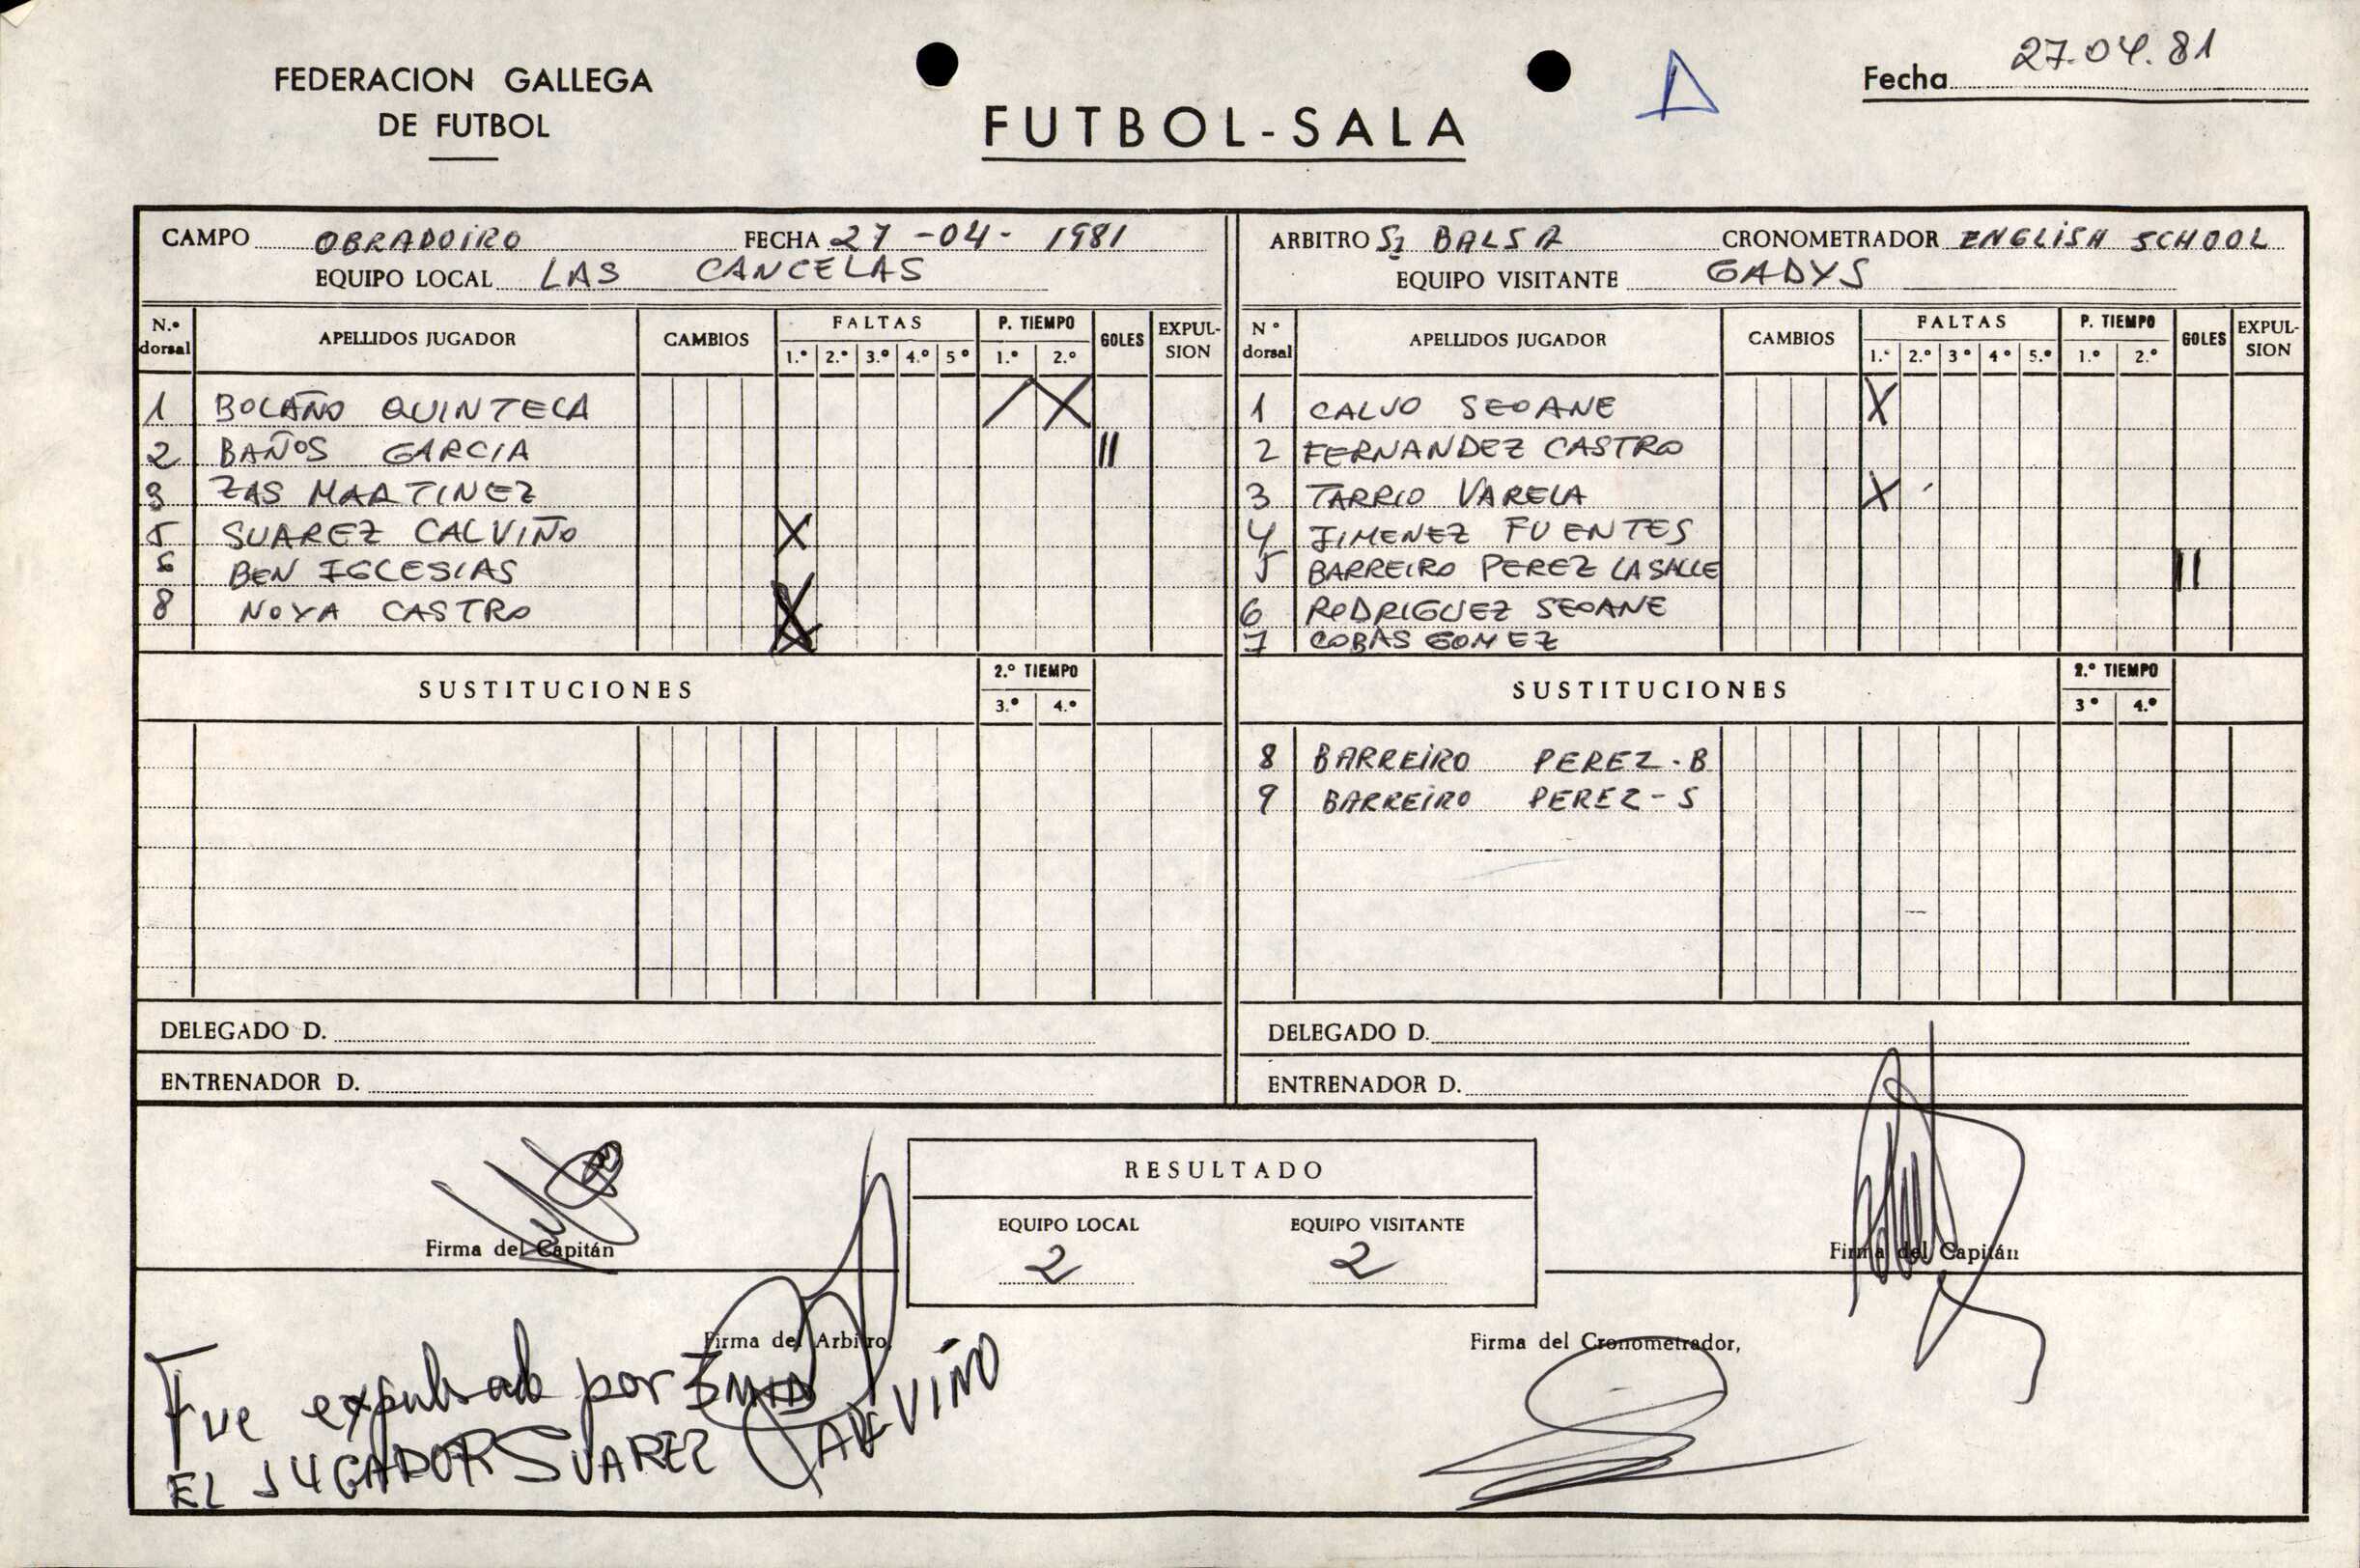 FEDERACION GALLEGA
DE FUTBOL
FUTBOL-SALA
Fecha 27.04.81
CAMPO OBRADOIRO FECHA 27-04-1981
EQUIPO LOCAL LAS CANCELAS
ARBITRO BALSA CRONOMETRADOR ENGLISH SCHOOL
EQUIPO VISITANTE GADYS
N.º dorsal APELLIDOS JUGADOR CAMBIOS FALTAS 1.º 2.º 3.º 4.º 5º P. TIEMPO 1.º 2.º GOLES EXPUL-SION
1 BOLAÑO QUINTELA
2 BAÑOS GARCIA
3 ZAS MARTINEZ
5 SUAREZ CALVIÑO X
6 BEN IGLESIAS
8 NOYA CASTRO X
SUSTITUCIONES 2.º TIEMPO 3.º 4.º
DELEGADO D.
ENTRENADOR D.
Nº dorsal APELLIDOS JUGADOR CAMBIOS FALTAS 1.º 2.º 3º 4º 5.º P. TIEMPO 1.º 2.º GOLES EXPUL-SION
1 CALVO SEOANE X
2 FERNANDEZ CASTRO
3 TARRIO VARELA X
4 JIMENEZ FUENTES
5 BARREIRO PEREZ LASALLE II
6 RODRIGUEZ SEOANE
7 COBAS GOMEZ
SUSTITUCIONES 2.º TIEMPO 3º 4.º
8 BARREIRO PEREZ-B
9 BARREIRO PEREZ-S
DELEGADO D.
ENTRENADOR D.
Firma del Capitán
RESULTADO
EQUIPO LOCAL EQUIPO VISITANTE
2 2
Firma del Capitán
Firma del Arbitro,
Firma del Cronometrador,
Fue expulsado por
EL JUGADOR SUAREZ CALVIÑO